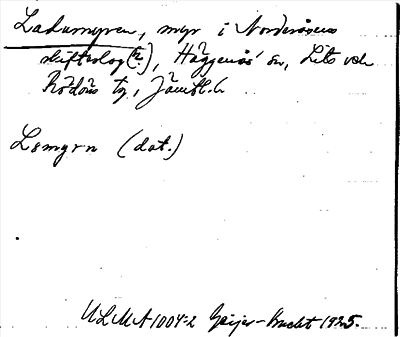 Ladumyren, myr i Norderåsens
skifteslag (?), Häggenås sn, Lits och
Rödöns tg, Jämtl. l.
Lamyrn (dat.)
ULMA 1004:2 Geijer-Bucht 1925.